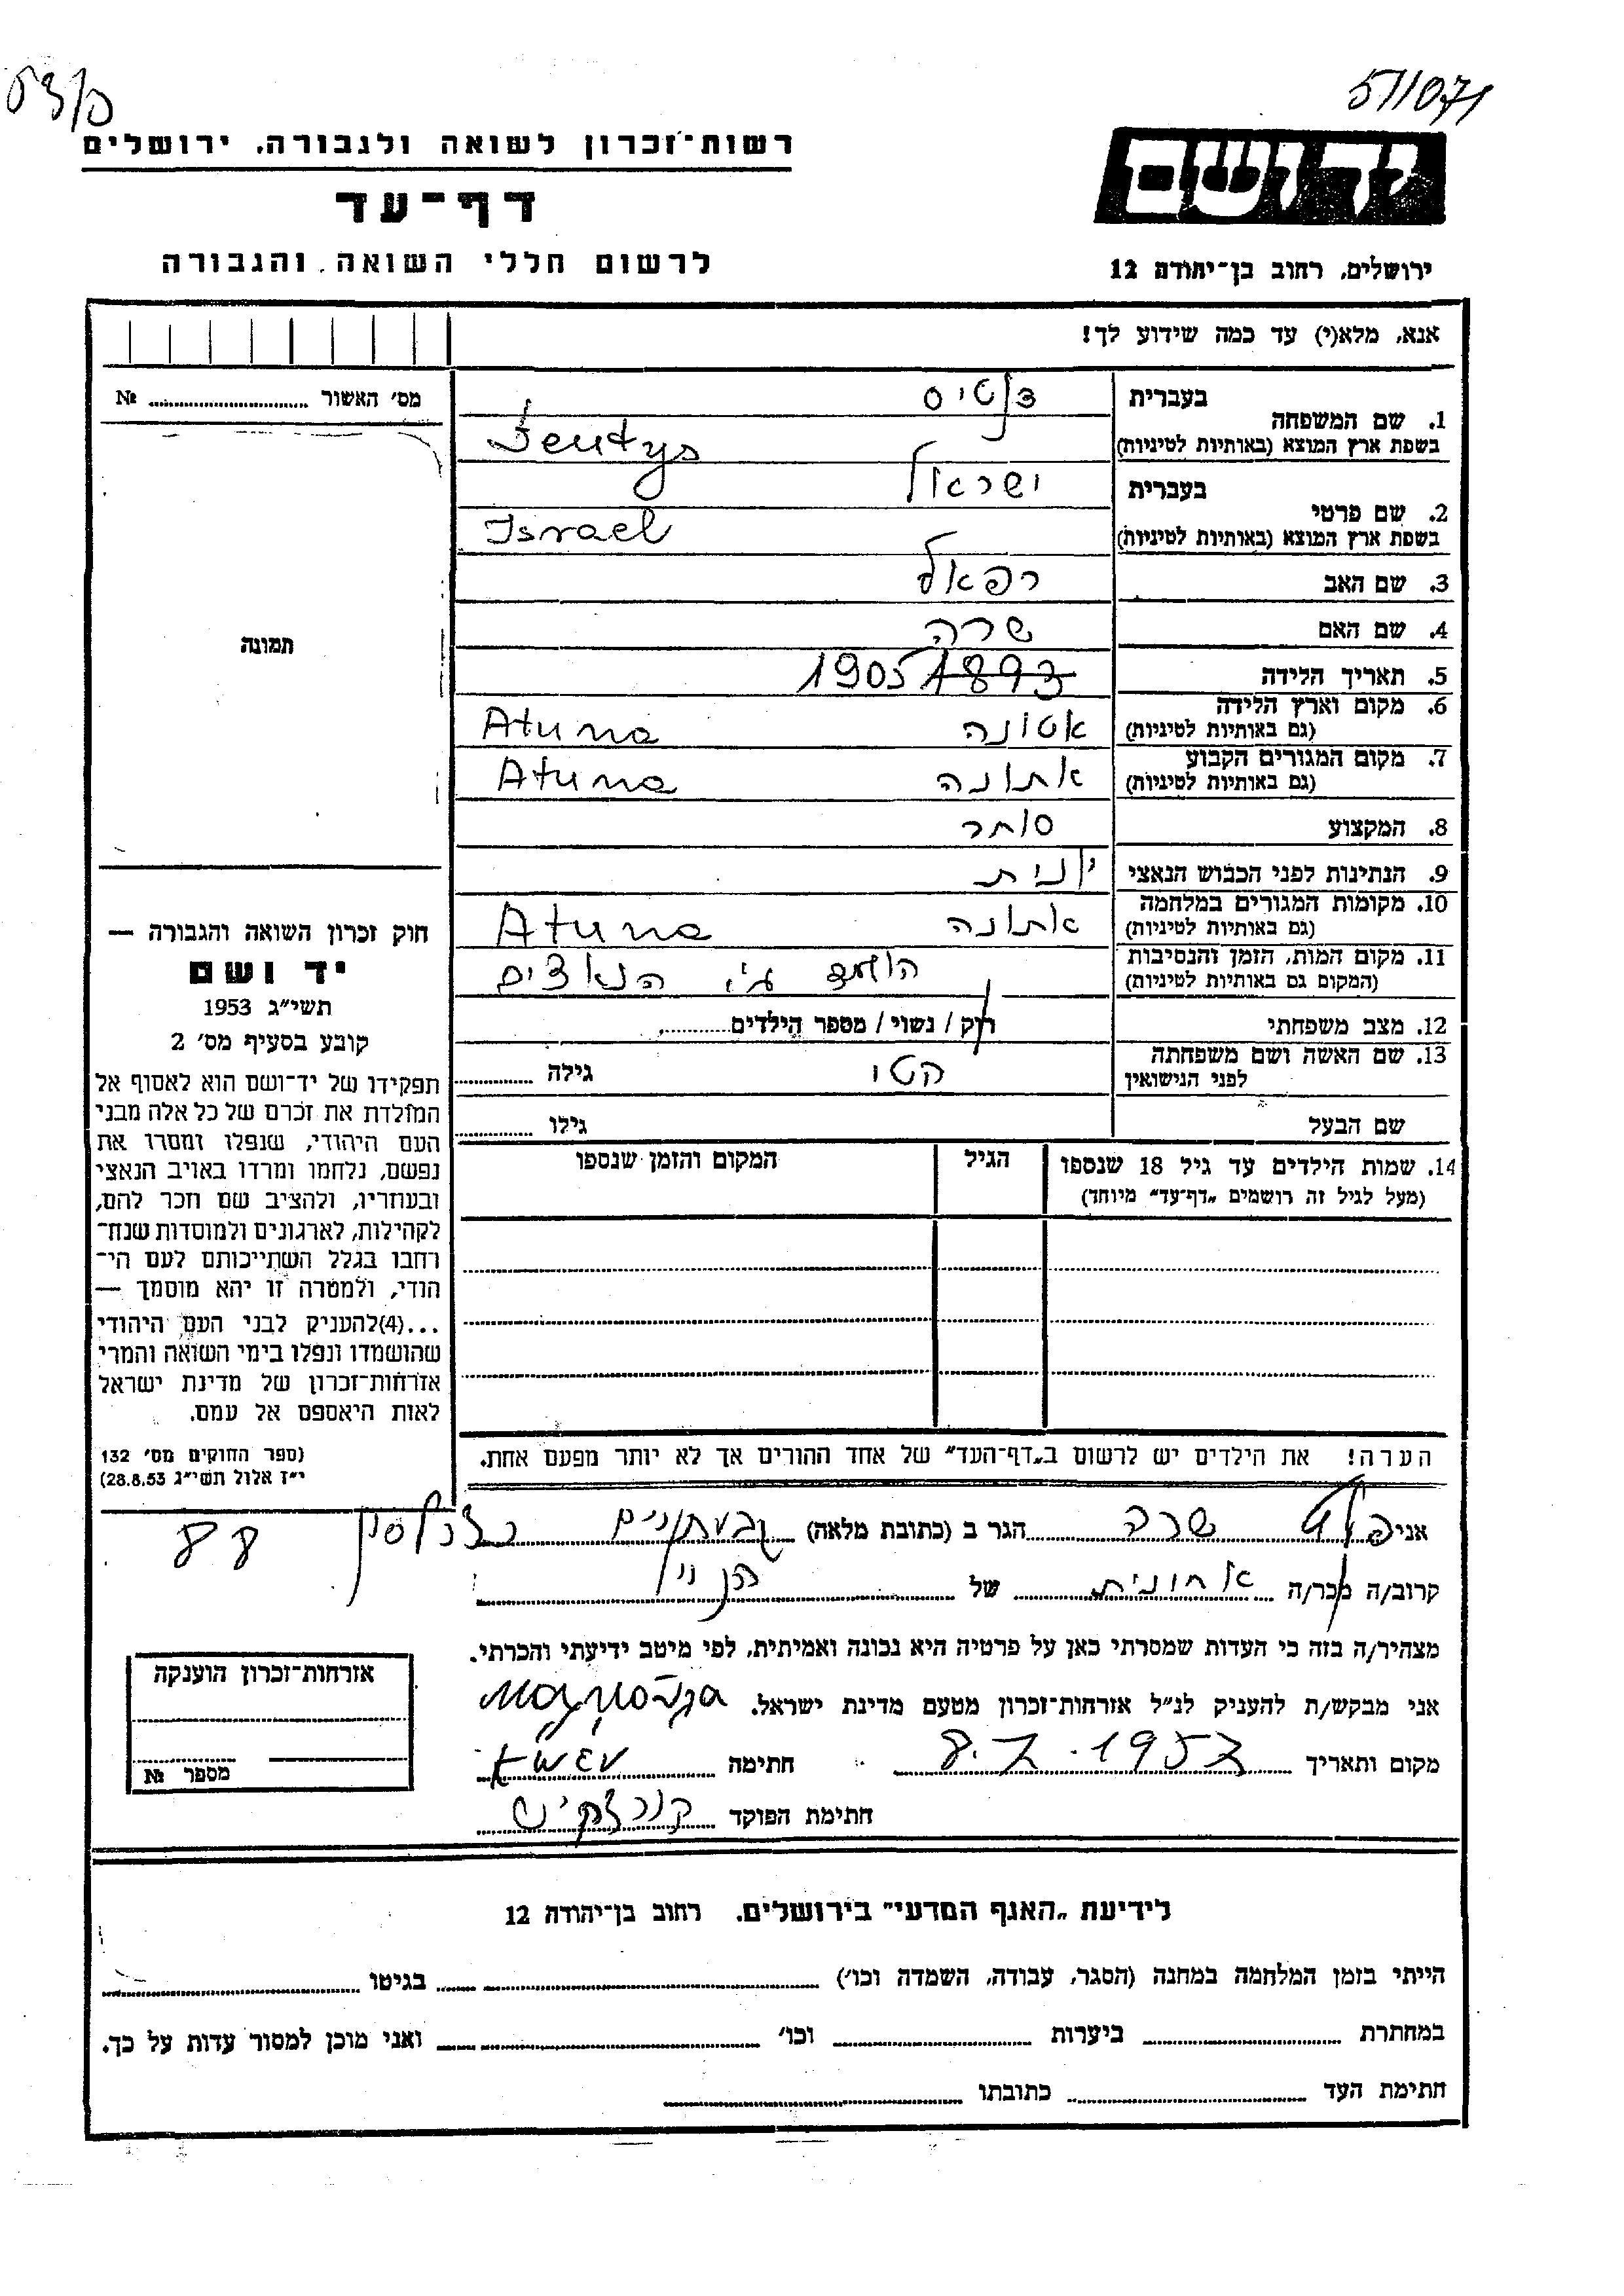 511071
רשות־זכרון לשואה ולגבורה, ירושלים
דף־עד
לרשום חללי השואה והגבורה
יד ושם
ירושלים, רחוב בן־יהודה 12
אנא, מלא(י) עד כמה שידוע לך!
מס׳ האשור № 
1. שם המשפחה
בעברית
בשפת ארץ המוצא (באותיות לטיניות) Jentys
2. שם פרטי
בעברית ישראל
בשפת ארץ המוצא (באותיות לטיניות) Israel
3. שם האב רפאל
4. שם האם שרה
5. תאריך הלידה 1893 1905
6. מקום וארץ הלידה אטונה Atuna
(גם באותיות לטיניות)
7. מקום המגורים הקבוע אתונה Atuna
(גם באותיות לטיניות)
8. המקצוע סוחר
9. הנתינות לפני הכבוש הנאצי יונית
10. מקומות המגורים במלחמה אתונה Atuna
(גם באותיות לטיניות)
11. מקום המות, הזמן והנסיבות הושמד ע״י הנאצים
(המקום גם באותיות לטיניות)
12. מצב משפחתי רווק / נשוי / מספר הילדים
13. שם האשה ושם משפחתה קטו גילה
לפני הנישואין
שם הבעל גילו
14. שמות הילדים עד גיל 18 שנספו הגיל המקום והזמן שנספו
(מעל לגיל זה רושמים „דף־עד״ מיוחד)
הערה! את הילדים יש לרשום ב„דף־העד״ של אחד ההורים אך לא יותר מפעם אחת.
תמונה
חוק זכרון השואה והגבורה —
יד ושם
תשי״ג 1953
קובע בסעיף מס׳ 2
תפקידו של יד־ושם הוא לאסוף אל
המולדת את זכרם של כל אלה מבני
העם היהודי, שנפלו ומסרו את
נפשם, נלחמו ומרדו באויב הנאצי
ובעוזריו, ולהציב שם וזכר להם,
לקהילות, לארגונים ולמוסדות שנח־
רבו בגלל השתייכותם לעם הי־
הודי, ולמטרה זו יהא מוסמך —
...(4)להעניק לבני העם היהודי
שהושמדו ונפלו בימי השואה והמרי
אזרחות־זכרון של מדינת ישראל
לאות היאספם אל עמם.
(ספר החוקים מס׳ 132
י״ז אלול תשי״ג 28.8.53)
אני שרה הגר ב (כתובת מלאה) גבעתיים כצנלסון 88
קרוב/ה מכר/ה אחונית של הנ״ל
מצהיר/ה בזה כי העדות שמסרתי כאן על פרטיה היא נכונה ואמיתית, לפי מיטב ידיעתי והכרתי.
אני מבקש/ת להעניק לנ״ל אזרחות־זכרון מטעם מדינת ישראל.
מקום ותאריך 8.7.1957 חתימה
חתימת הפוקד
אזרחות־זכרון הוענקה
מספר №
לידיעת „האגף המדעי״ בירושלים, רחוב בן־יהודה 12
הייתי בזמן המלחמה במחנה (הסגר, עבודה, השמדה וכו׳) בגיטו
במחתרת ביערות וכו׳ ואני מוכן למסור עדות על כך.
חתימת העד כתובתו